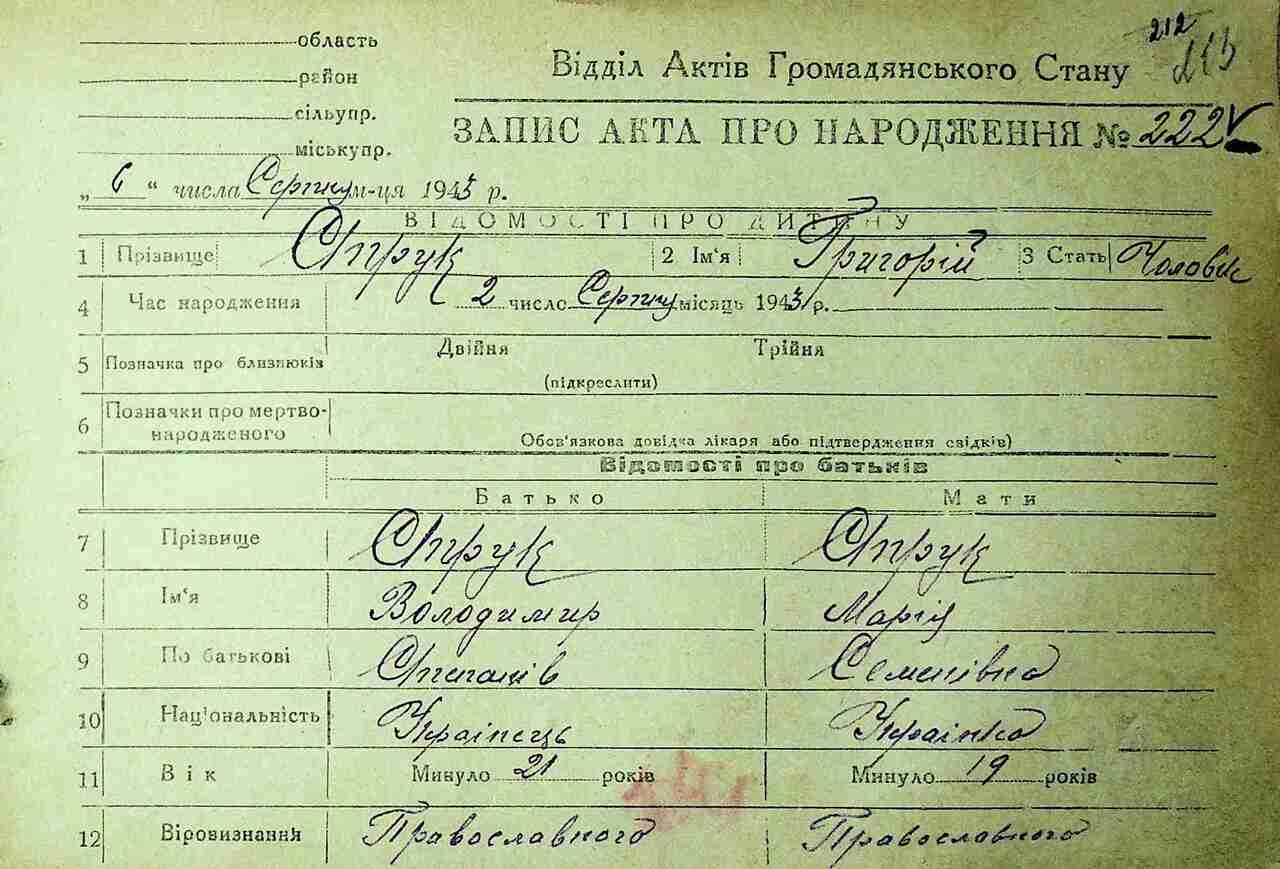 область
район
сільупр.
міськупр.
212
213
Відділ Актів Громадянського Стану
ЗАПИС АКТА ПРО НАРОДЖЕННЯ № 222
„6“ числа Серпня м-ця 1943 р.
ВІДОМОСТІ ПРО ДИТИНУ
1 Прізвище Струк 2 Ім'я Григорій 3 Стать Чоловік
4 Час народження 2 число Серпня місяць 1943 р.
5 Позначка про близнюків Двійня Трійня
(підкреслити)
6 Позначки про мертво-
народженого
Обов'язкова довідка лікаря або підтвердження свідків)
Відомості про батьків
Батько Мати
7 Прізвище Струк Струк
8 Ім'я Володимир Марія
9 По батькові Степанів Семенівна
10 Національність Українець Українка
11 Вік Минуло 21 років Минуло 19 років
12 Віровизнання Православного Православного